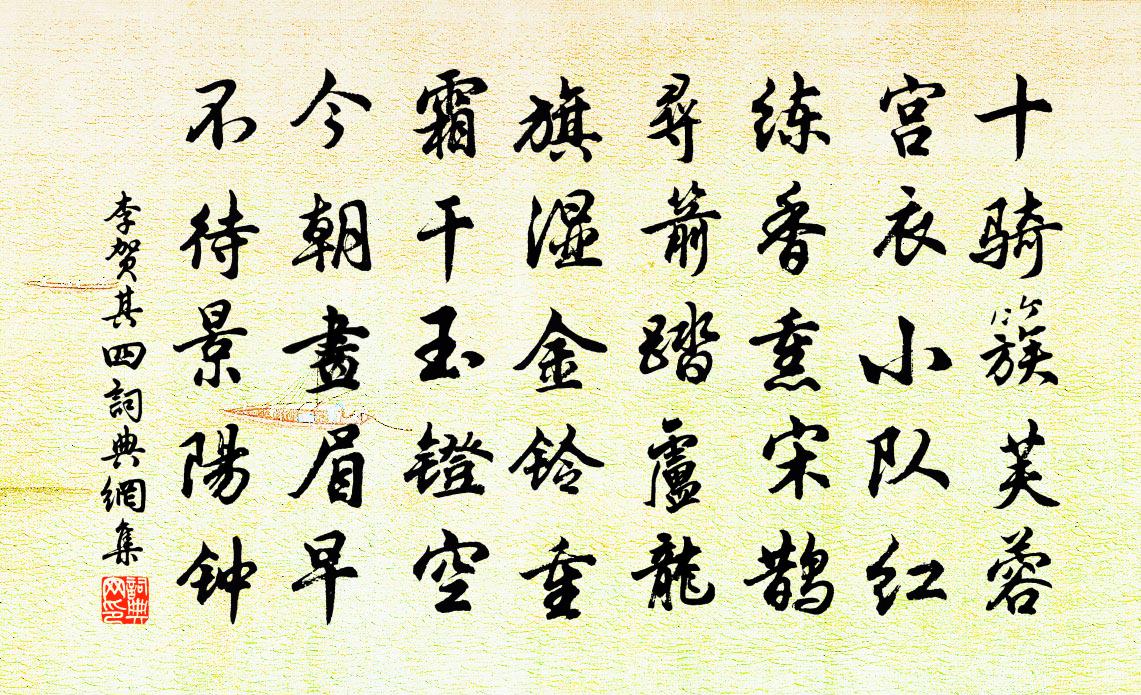 十骑簇芙蓉
宫衣小队红
练香熏宋鹊
尋箭踏盧龍
旗湿金铃重
霜干玉镫空
今朝畫眉早
不待景陽钟
李贺其四詞典網集
詞典网印